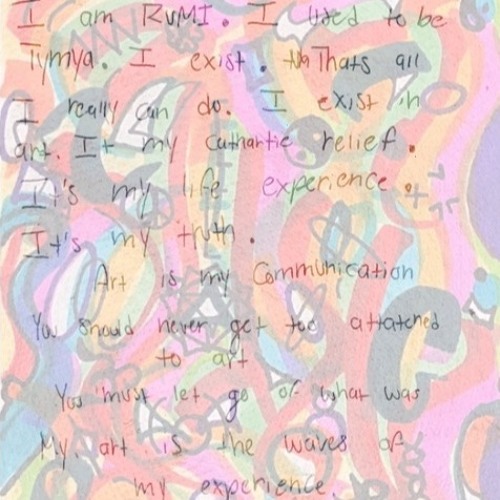 I am RUMI. I used to be
Tymya. I exist. Thats all
I really can do. I exist in
art. It my cathartic relief.
It's my life experience.
It's my truth.
Art is my Communication
You should never get too attatched
to art
You must let go of what was
My art is the waves of
my experience.